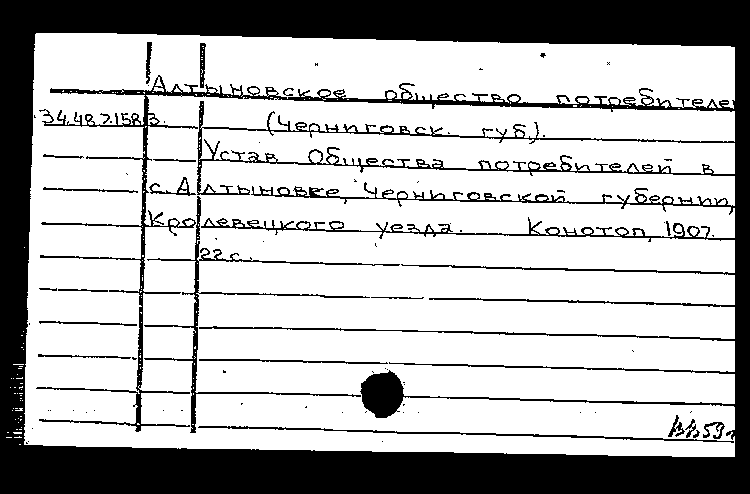 Алтыновское общество потребителе
34.48.7.158 3. (Черниговск. губ.).
Устав Общества потребителей в
с. Алтыновке, Черниговской губернии,
Кролевецкого уезда. Конотоп, 1907.
22 с.